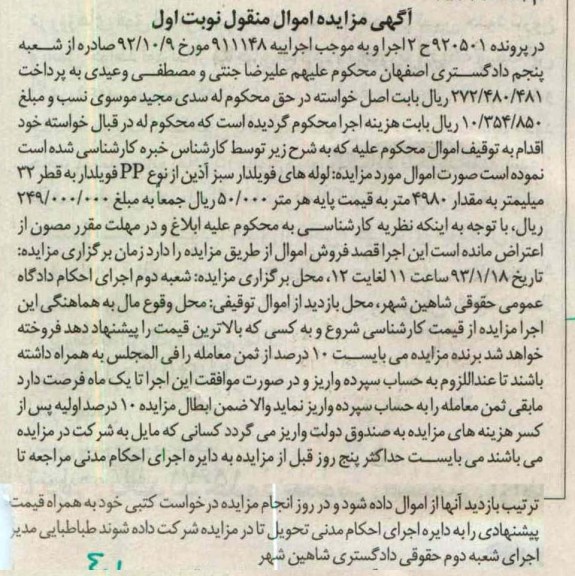 آگهی مزایده اموال منقول نوبت اول
در پرونده ۹۲۰۵۰۱ح ۲ اجرا و به موجب اجراییه ۹۱۱۱۴۸ مورخ ۹۲/۱۰/۹ صادره از شعبه
پنجم دادگستری اصفهان محکوم علیهم علیرضا جنتی و مصطفی وعیدی به پرداخت
۲۷۲/۴۸۰/۴۸۱ ریال بابت اصل خواسته در حق محکوم له سدی مجید موسوی نسب و مبلغ
۱۰/۳۵۴/۸۵۰ ریال بابت هزینه اجرا محکوم گردیده است که محکوم له در قبال خواسته خود
اقدام به توقیف اموال محکوم علیه که به شرح زیر توسط کارشناس خبره کارشناسی شده است
نموده است صورت اموال مورد مزایده: لوله های فویلدار سبز آذین از نوع PP فویلدار به قطر ۳۲
میلیمتر به مقدار ۴۹۸۰ متر به قیمت پایه هر متر ۵۰/۰۰۰ ریال جمعاً به مبلغ ۲۴۹/۰۰۰/۰۰۰
ریال، با توجه به اینکه نظریه کارشناسی به محکوم علیه ابلاغ و در مهلت مقرر مصون از
اعتراض مانده است این اجرا قصد فروش اموال از طریق مزایده را دارد زمان برگزاری مزایده:
تاریخ ۹۳/۱/۱۸ ساعت ۱۱ لغایت ۱۲، محل برگزاری مزایده: شعبه دوم اجرای احکام دادگاه
عمومی حقوقی شاهین شهر، محل بازدید از اموال توقیفی: محل وقوع مال به هماهنگی این
اجرا مزایده از قیمت کارشناسی شروع و به کسی که بالاترین قیمت را پیشنهاد دهد فروخته
خواهد شد برنده مزایده می بایست ۱۰ درصد از ثمن معامله را فی المجلس به همراه داشته
باشند تا عنداللزوم به حساب سپرده واریز و در صورت موافقت این اجرا تا یک ماه فرصت دارد
مابقی ثمن معامله را به حساب سپرده واریز نماید والا ضمن ابطال مزایده ۱۰ درصد اولیه پس از
کسر هزینه های مزایده به صندوق دولت واریز می گردد کسانی که مایل به شرکت در مزایده
می باشند می بایست حداکثر پنج روز قبل از مزایده به دایره اجرای احکام مدنی مراجعه تا
ترتیب بازدید آنها از اموال داده شود و در روز انجام مزایده درخواست کتبی خود به همراه قیمت
پیشنهادی را به دایره اجرای احکام مدنی تحویل تا در مزایده شرکت داده شوند طباطبایی مدیر
اجرای شعبه دوم حقوقی دادگستری شاهین شهر